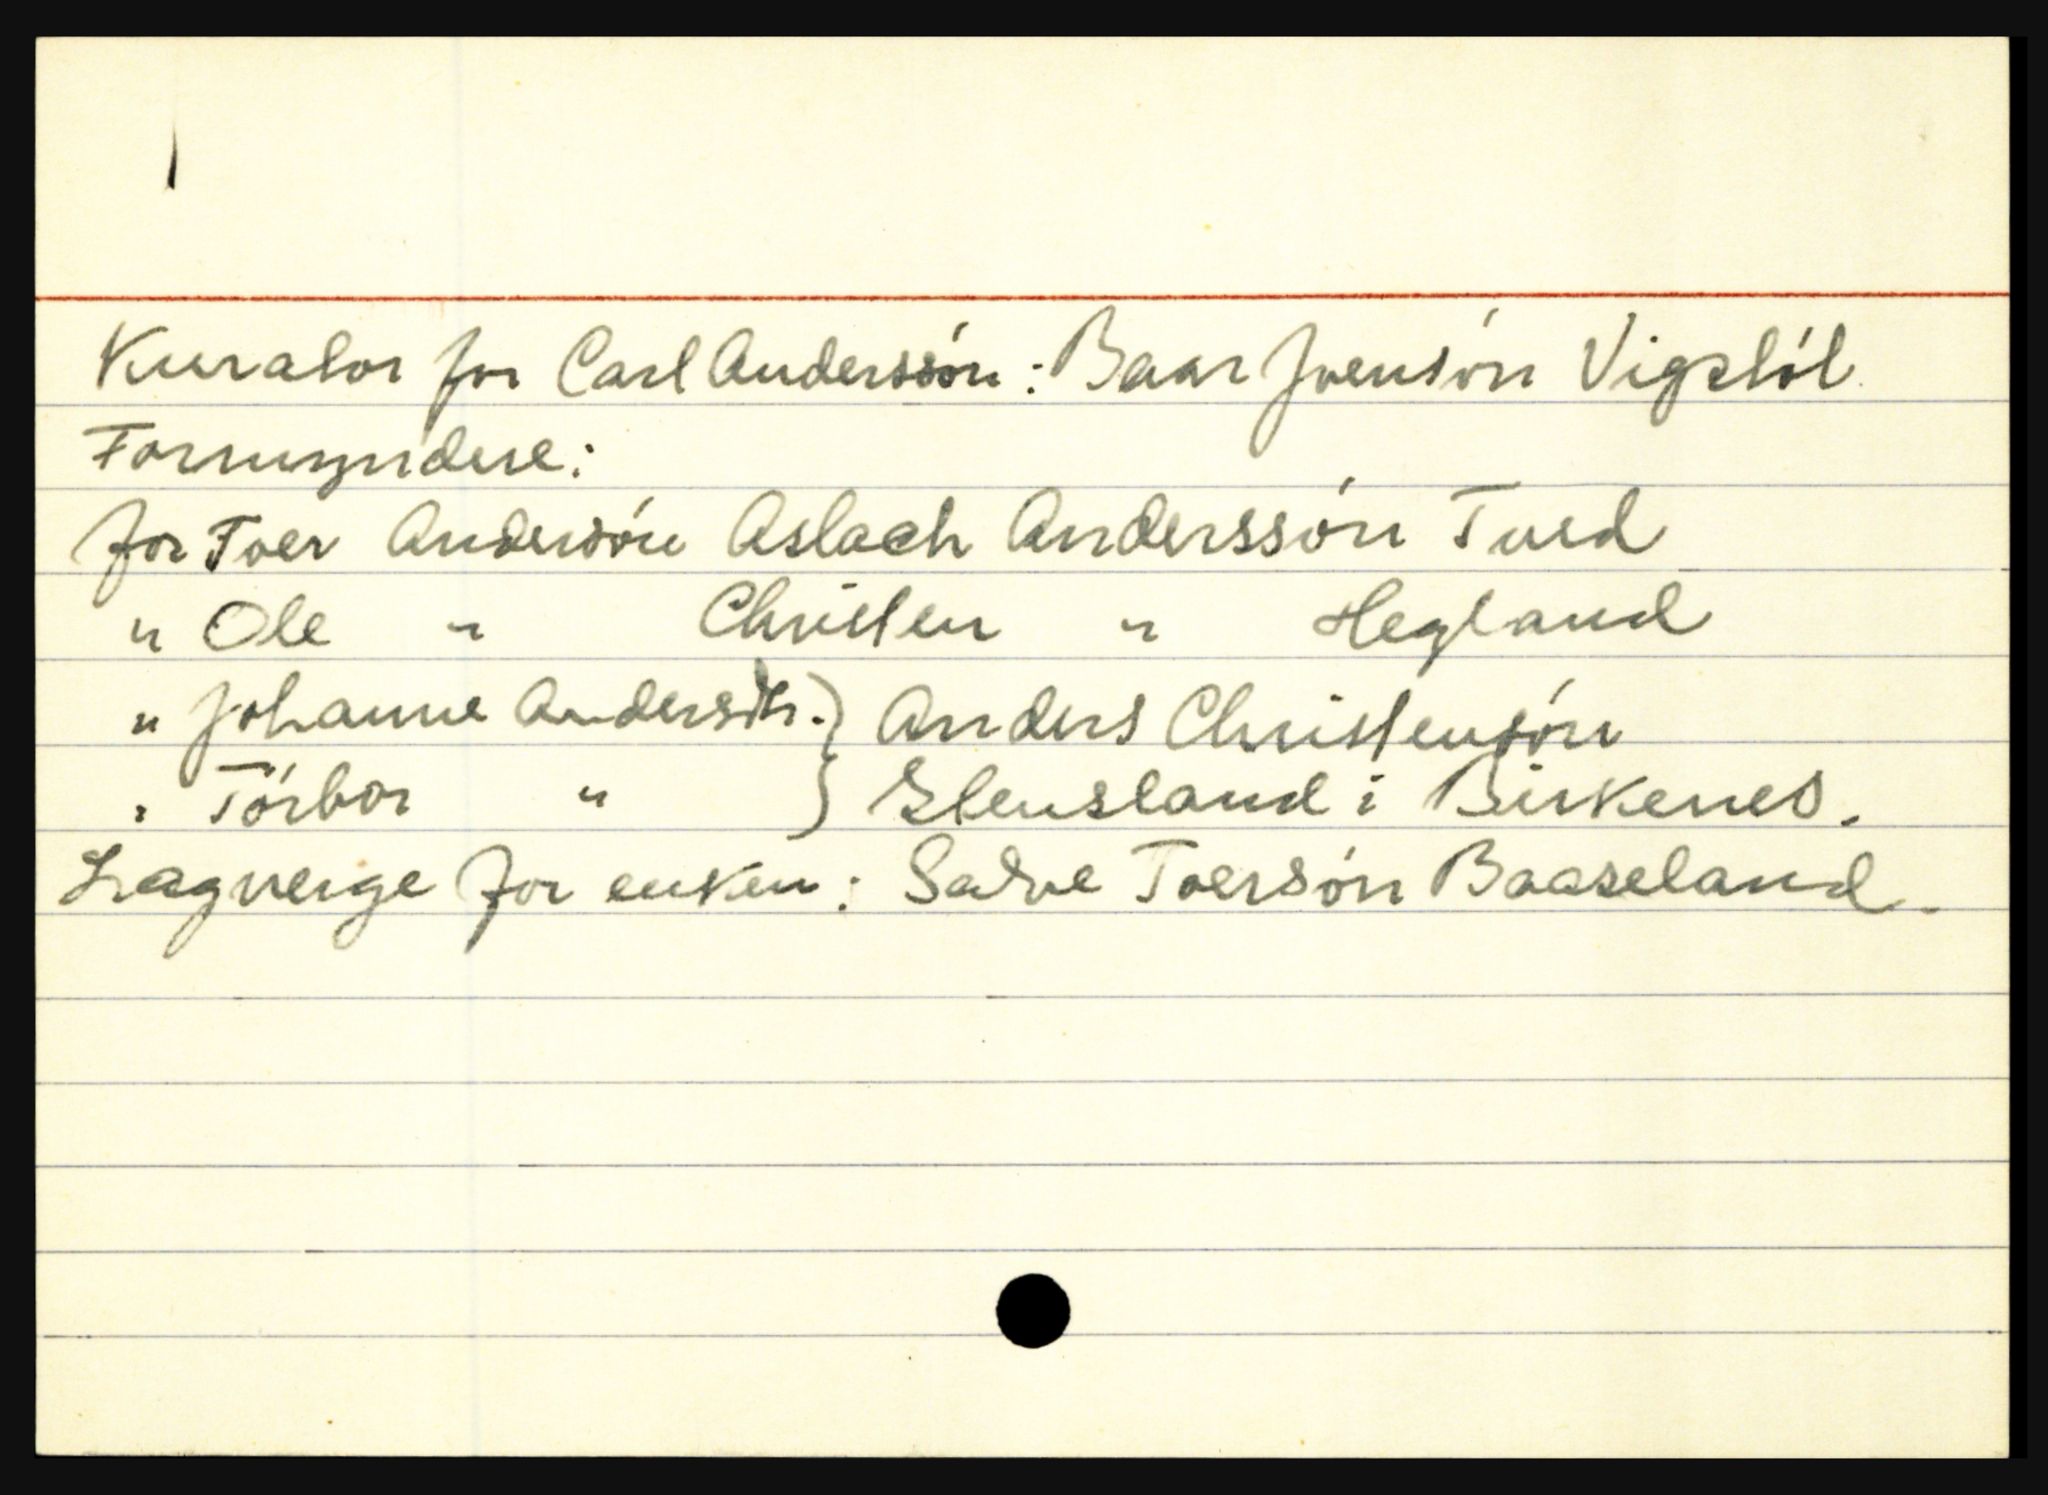 Kurator for Carl Anderssón: Baar Joensón Vigstól
Formyndere:
for Toer Andersón Aslach Anderssón Tued
" Ole " Christen " Hegland
" Johanne Andersdtr. } Anders Christensón
" Tórbor " } Glensland i Birkenes.
Lagverge for enken: Salve Toersón Baaseland.